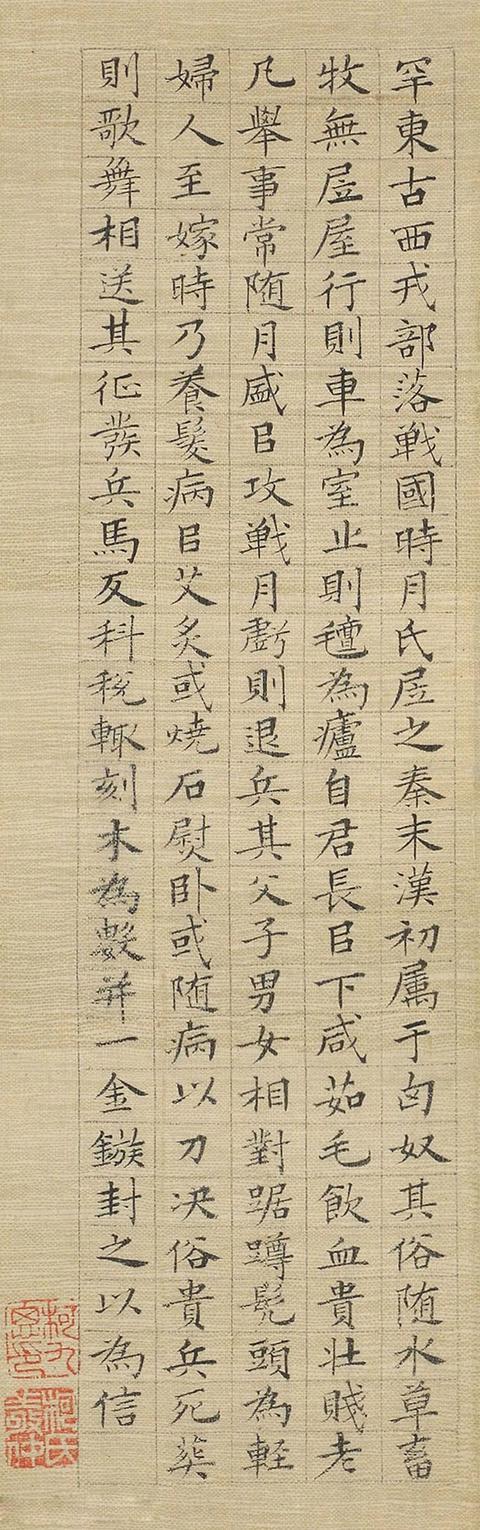 罕東古西戎部落戦國時月氏居之秦末漢初属于匈奴其俗随水草畜
牧無居屋行則車為室止則氊為廬自君長㠯下咸茹毛飲血貴壮賤老
凡舉事常随月盛㠯攻戦月虧則退兵其父子男女相對踞蹲髡頭為軽
婦人至嫁時乃養髮病㠯艾炙或焼石熨卧或随病以刀决俗貴兵死葬
則歌舞相送其征發兵馬及科稅輙刻木為數并一金鏃封之以為信
柯九思印
柯氏敬仲